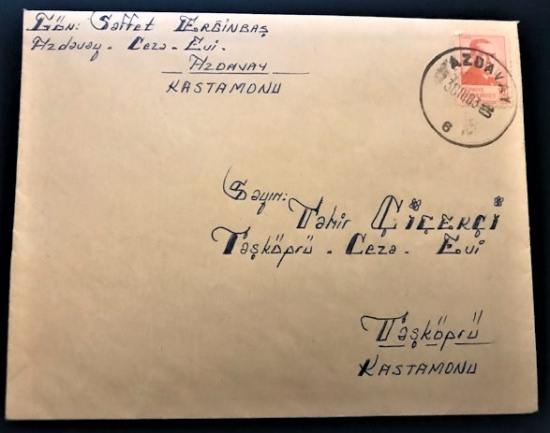 Gön: Saffet Erginbaş
Azdavay - Ceza - Evi.
AZDAVAY
KASTAMONU
AZDAVAY
Sayın:
Tahir Çiçekçi
Taşköprü - Ceza - Evi
Taşköprü
KASTAMONU